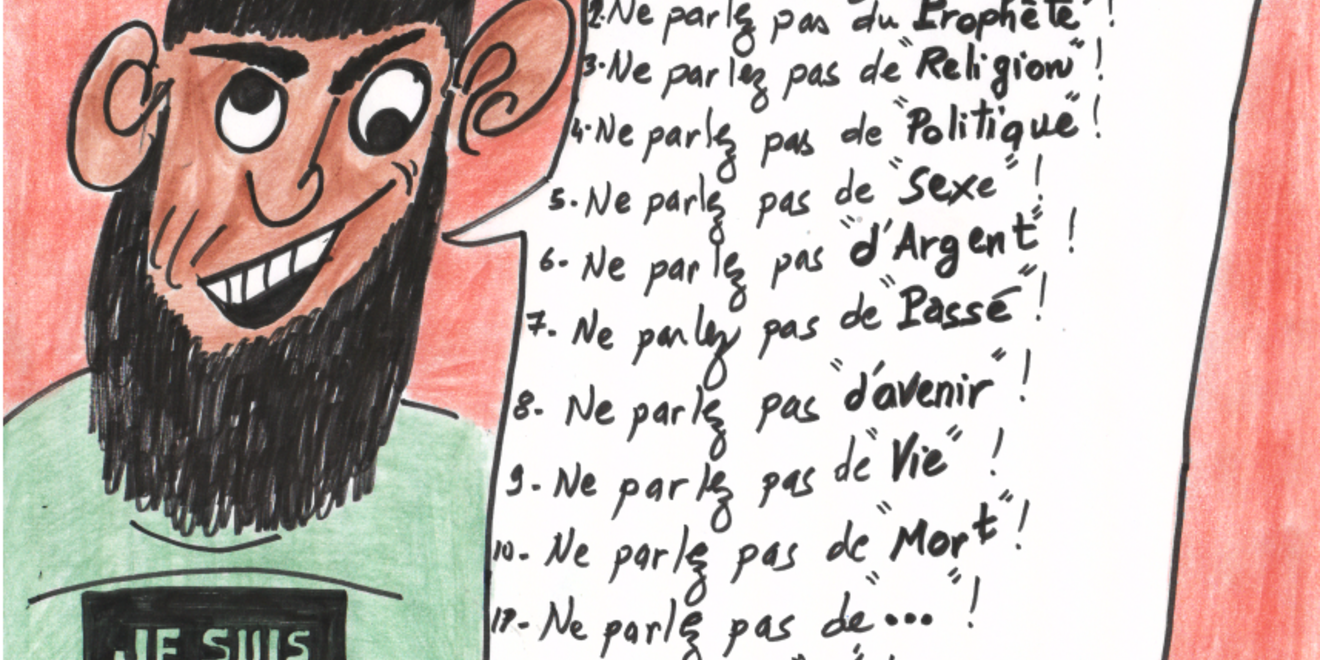 2. Ne parlez pas du "Prophète" !
3. Ne parlez pas de "Religion" !
4. Ne parlez pas de "Politique" !
5. Ne parlez pas de "Sexe" !
6- Ne parlez pas "d'Argent" !
7- Ne parlez pas de "Passé" !
8- Ne parlez pas "d'avenir" !
9- Ne parlez pas de "Vie" !
10- Ne parlez pas de "Mort" !
Ne parlez pas de "..." !
JE SUIS